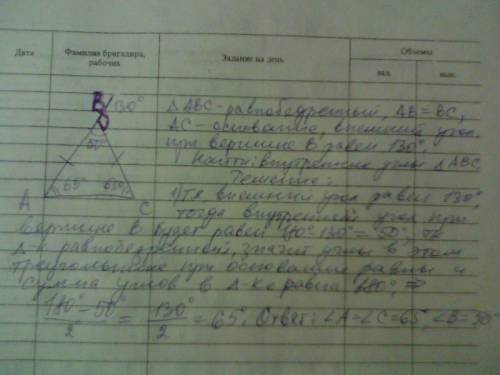 Дата
Фамилия бригадира, рабочих
Задание на день
Объемы
зад.
вып.
B 130°
50°
65° 65°
A
C
△ABC-равнобедренный, AB=BC,
AC-основание, внешний угол
при вершине B равен 130°.
Найти: внутренние углы △ABC
Решение:
1) Т.к внешний угол равен 130°,
тогда внутренний угол при
вершине B будет равен 180°-130°=50°, тк
Δ-к равнобедренный, значит углы в этом
треугольнике при основании равны и
сумма углов в Δ-ке равна 180°, ⇒
180°-50°/2 = 130°/2 = 65°. Ответ: ∠A=∠C=65°, ∠B=50°